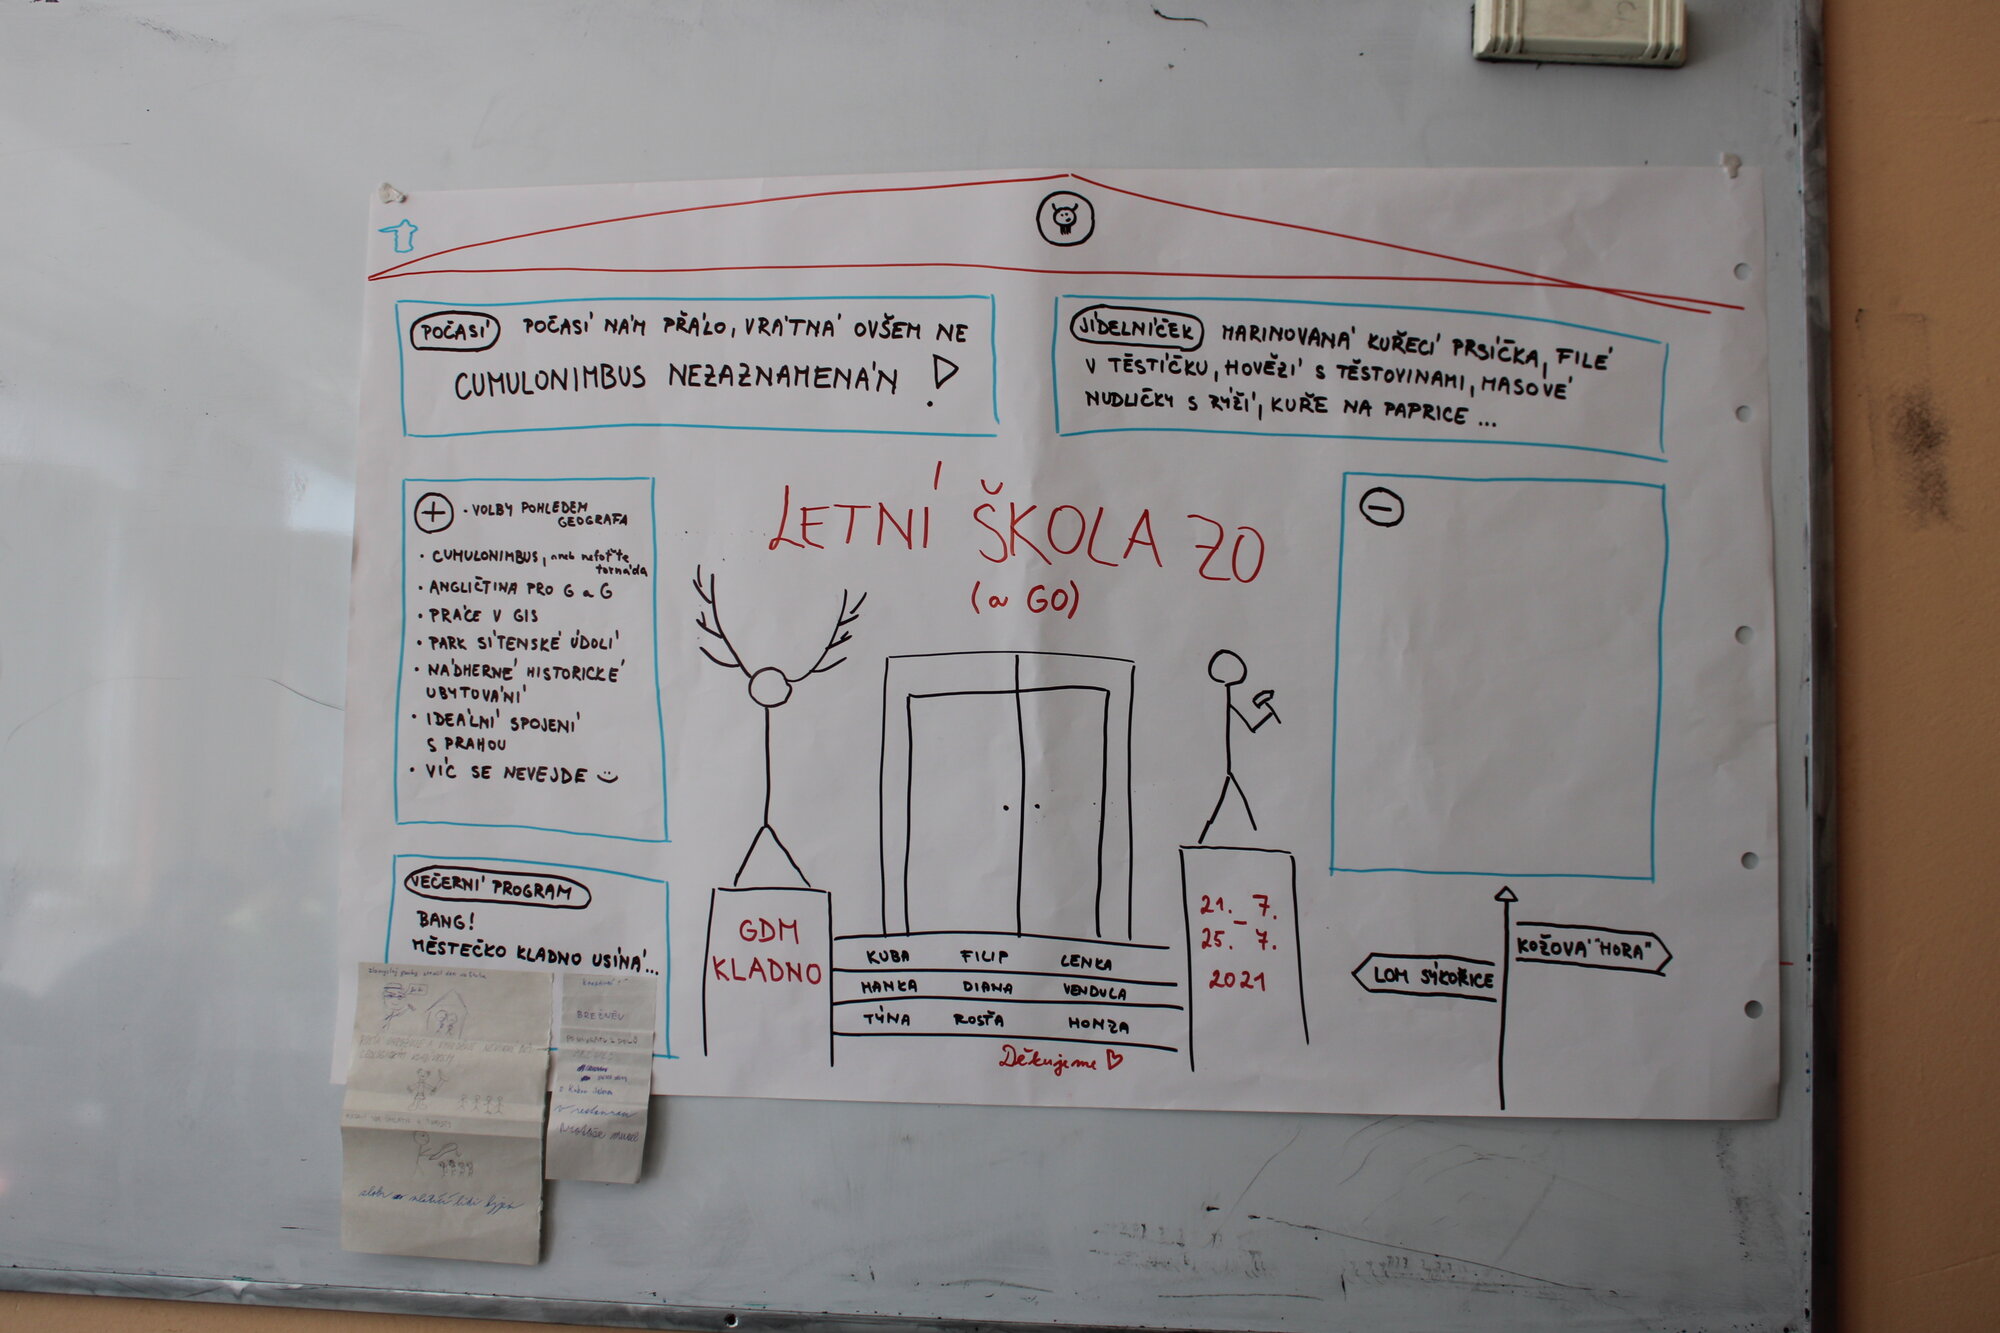 POČASÍ
POČASÍ NÁM PŘÁLO, VRÁTNÁ OVŠEM NE
CUMULONIMBUS NEZAZNAMENÁN !
JÍDELNÍČEK
MARINOVANÁ KUŘECÍ PRSÍČKA, FILÉ
V TĚSTÍČKU, HOVĚZÍ S TĚSTOVINAMI, MASOVÉ
NUDLIČKY S RÝŽÍ, KUŘE NA PAPRICE ...
LETNÍ ŠKOLA ZO
(a GO)
+
• VOLBY POHLEDEM
GEOGRAFA
• CUMULONIMBUS, aneb nefoťte
tornáda
• ANGLIČTINA PRO G a G
• PRÁCE V GIS
• PARK SÍTENSKÉ ÚDOLÍ
• NÁDHERNÉ HISTORICKÉ
UBYTOVÁNÍ
• IDEÁLNÍ SPOJENÍ
S PRAHOU
• VÍC SE NEVEJDE
-
VEČERNÍ PROGRAM
BANG!
MĚSTEČKO KLADNO USÍNÁ...
GDM
KLADNO
21. 7.
–
25. 7.
2021
KUBA FILIP LENKA
HANKA DIANA VENDULA
TÝNA ROSŤA HONZA
Děkujeme
LOM SÝKOŘICE
KOŽOVÁ "HORA"